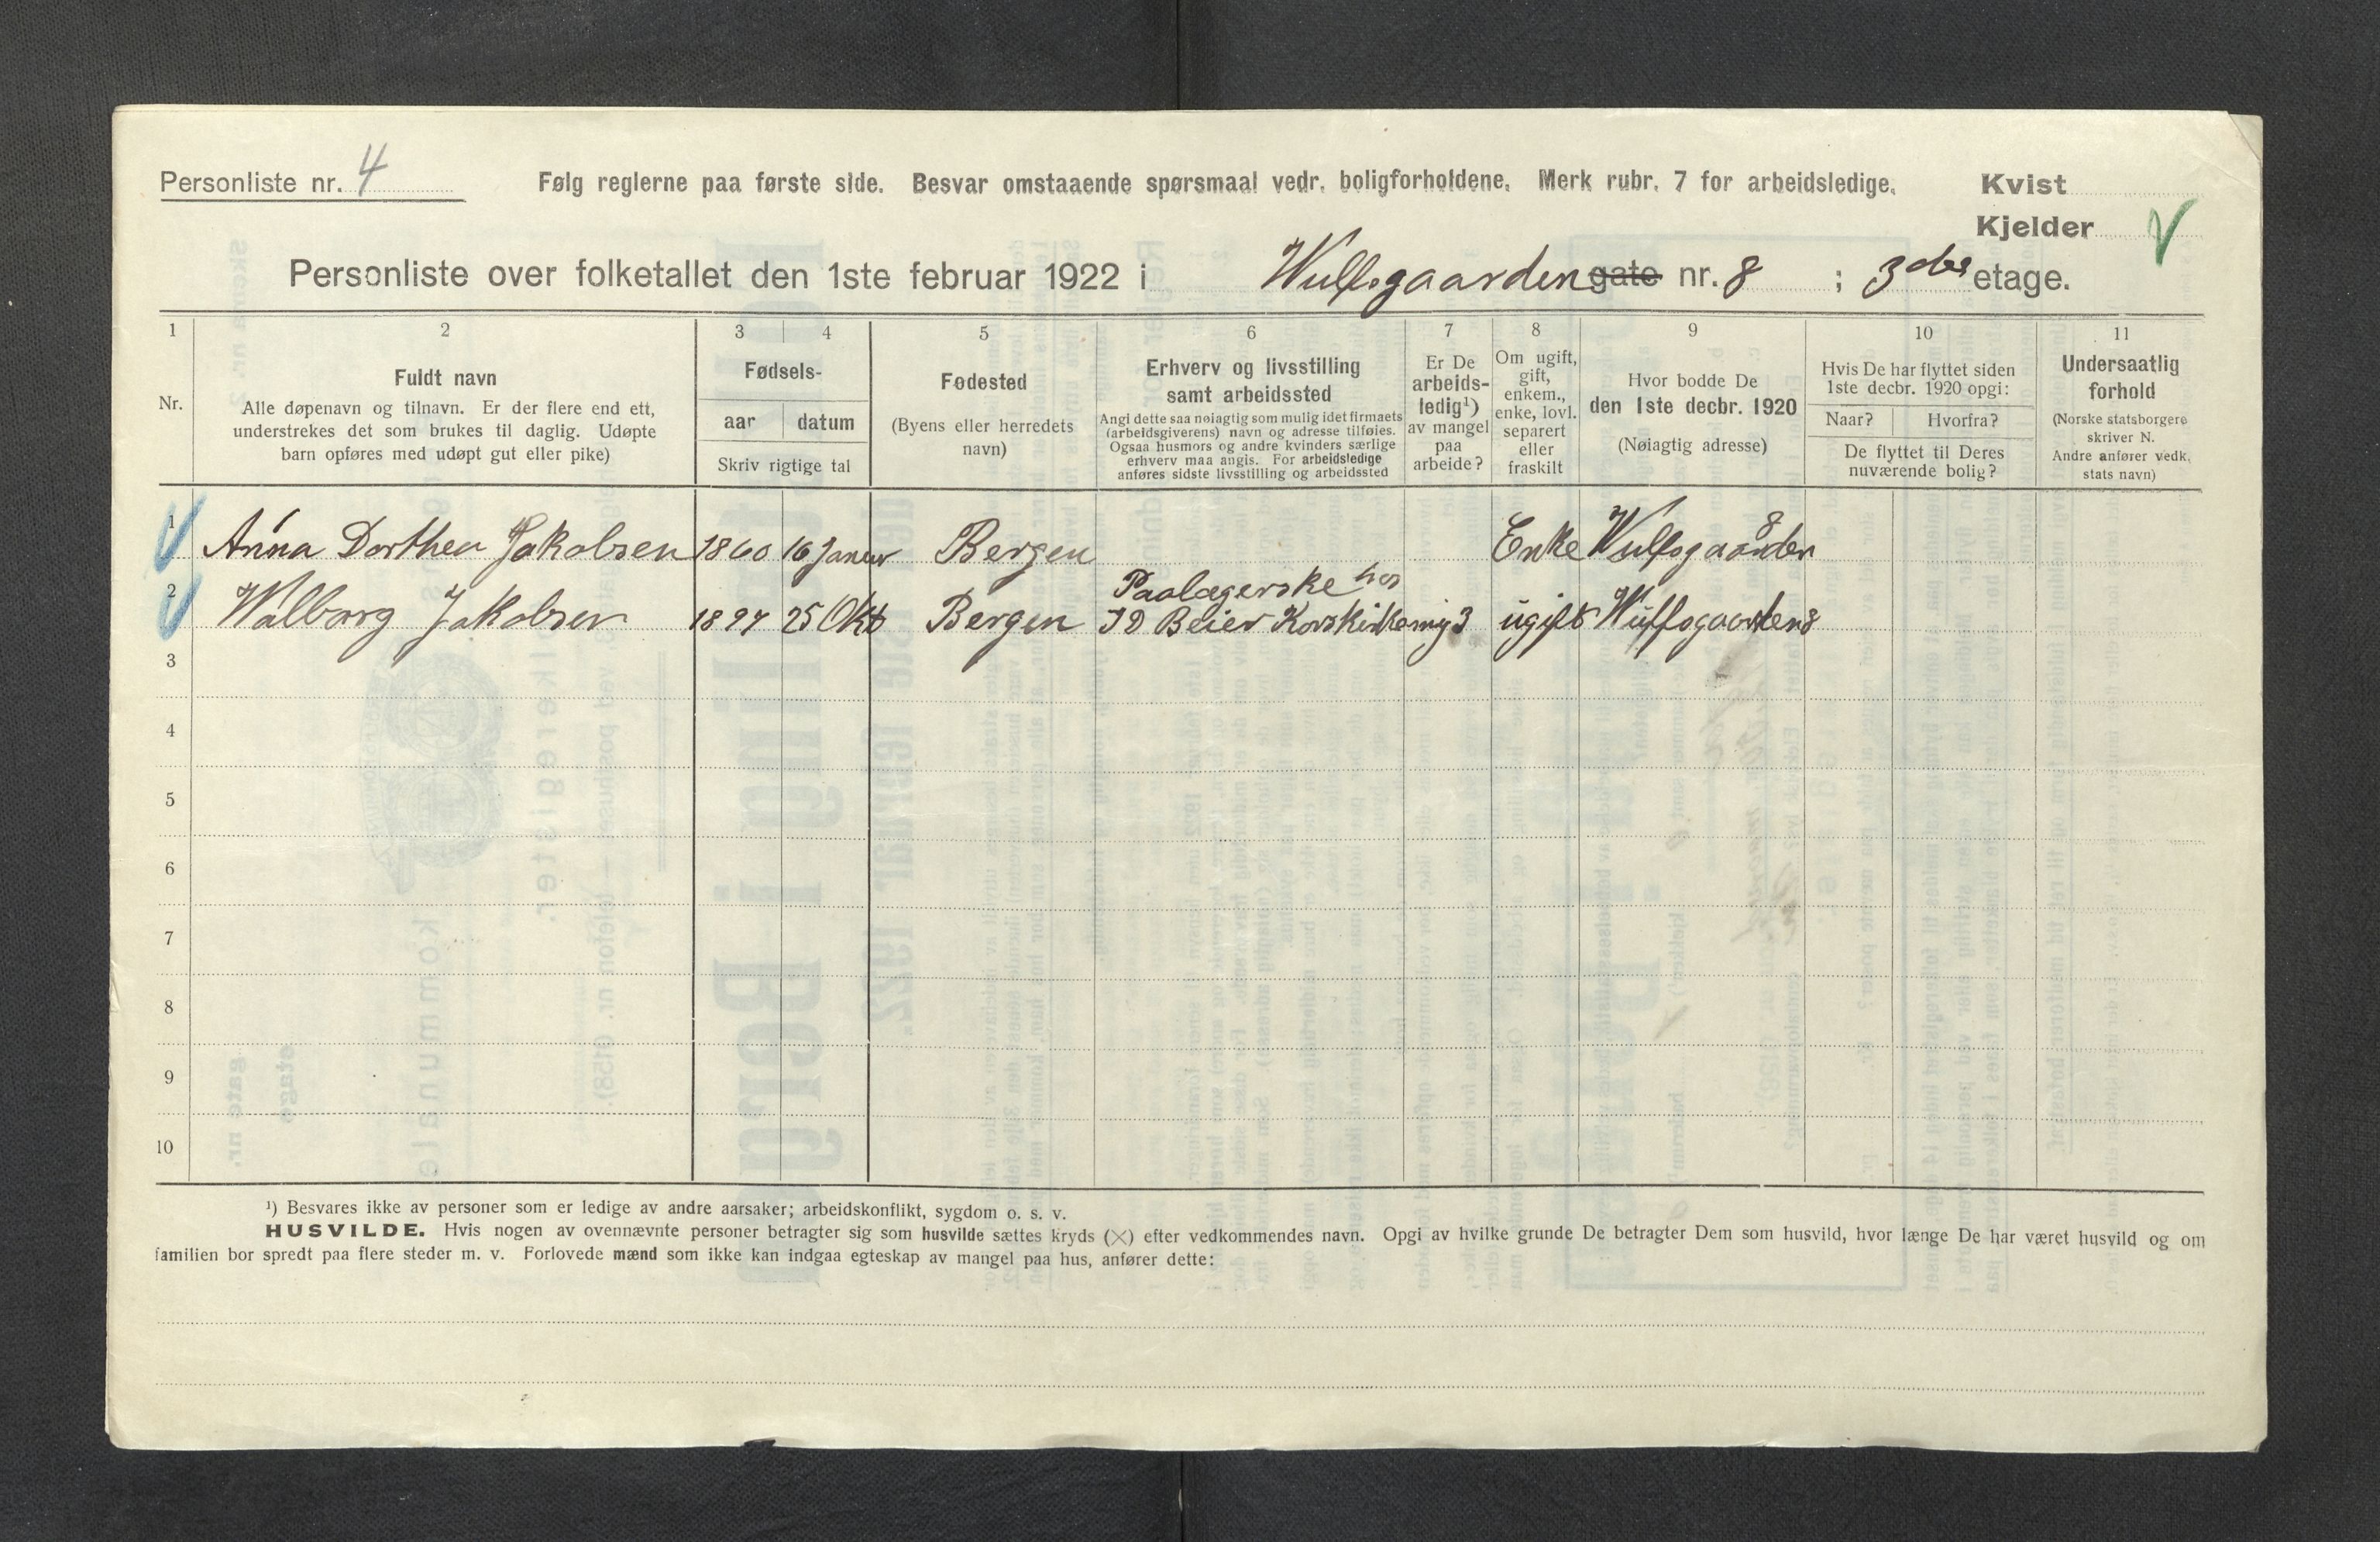 Personliste nr. 4
Følg reglerne paa første side. Besvar omstaaende spørsmaal vedr. boligforholdene. Merk rubr. 7 for arbeidsledige.
Kvist
Kjelder
Personliste over folketallet den 1ste februar 1922 i Wulfsgaarden gate nr. 8 ; 3die etage.
1 2 3 4 5 6 7 8 9 10 11
Nr.
Fuldt navn
Alle døpenavn og tilnavn. Er der flere end ett,
understrekes det som brukes til daglig. Udøpte
barn opføres med udøpt gut eller pike)
Fødsels-
aar datum
Skriv rigtige tal
Fødested
(Byens eller herredets
navn)
Erhverv og livsstilling
samt arbeidssted
Angi dette saa nøiagtig som mulig idet firmaets
(arbeidsgiverens) navn og adresse tilføies.
Ogsaa husmors og andre kvinders særlige
erhverv maa angis. For arbeidsledige
anføres sidste livsstilling og arbeidssted
Er De
arbeids-
ledig¹)
av mangel
paa
arbeide?
Om ugift,
gift,
enkem.,
enke, lovl.
separert
eller
fraskilt
Hvor bodde De
den 1ste decbr. 1920
(Nøiagtig adresse)
Hvis De har flyttet siden
1ste decbr. 1920 opgi:
Naar? Hvorfra?
De flyttet til Deres
nuværende bolig?
Undersaatlig
forhold
(Norske statsborgere
skriver N.
Andre anfører vedk.
stats navn)
1 Anna Dorthea Jakobsen 1860 16 Januar Bergen Enke Wulfsgaarden 8
2 Walborg Jakobsen 1897 25 Okt Bergen Paalægerske hos
J D Beier Korskirkemig 3 ugift Wulfsgaarden 8
3
4
5
6
7
8
9
10
¹) Besvares ikke av personer som er ledige av andre aarsaker; arbeidskonflikt, sygdom o. s. v.
HUSVILDE. Hvis nogen av ovennævnte personer betragter sig som husvilde sættes kryds (×) efter vedkommendes navn. Opgi av hvilke grunde De betragter Dem som husvild, hvor længe De har været husvild og om
familien bor spredt paa flere steder m. v. Forlovede mænd som ikke kan indgaa egteskap av mangel paa hus, anfører dette: